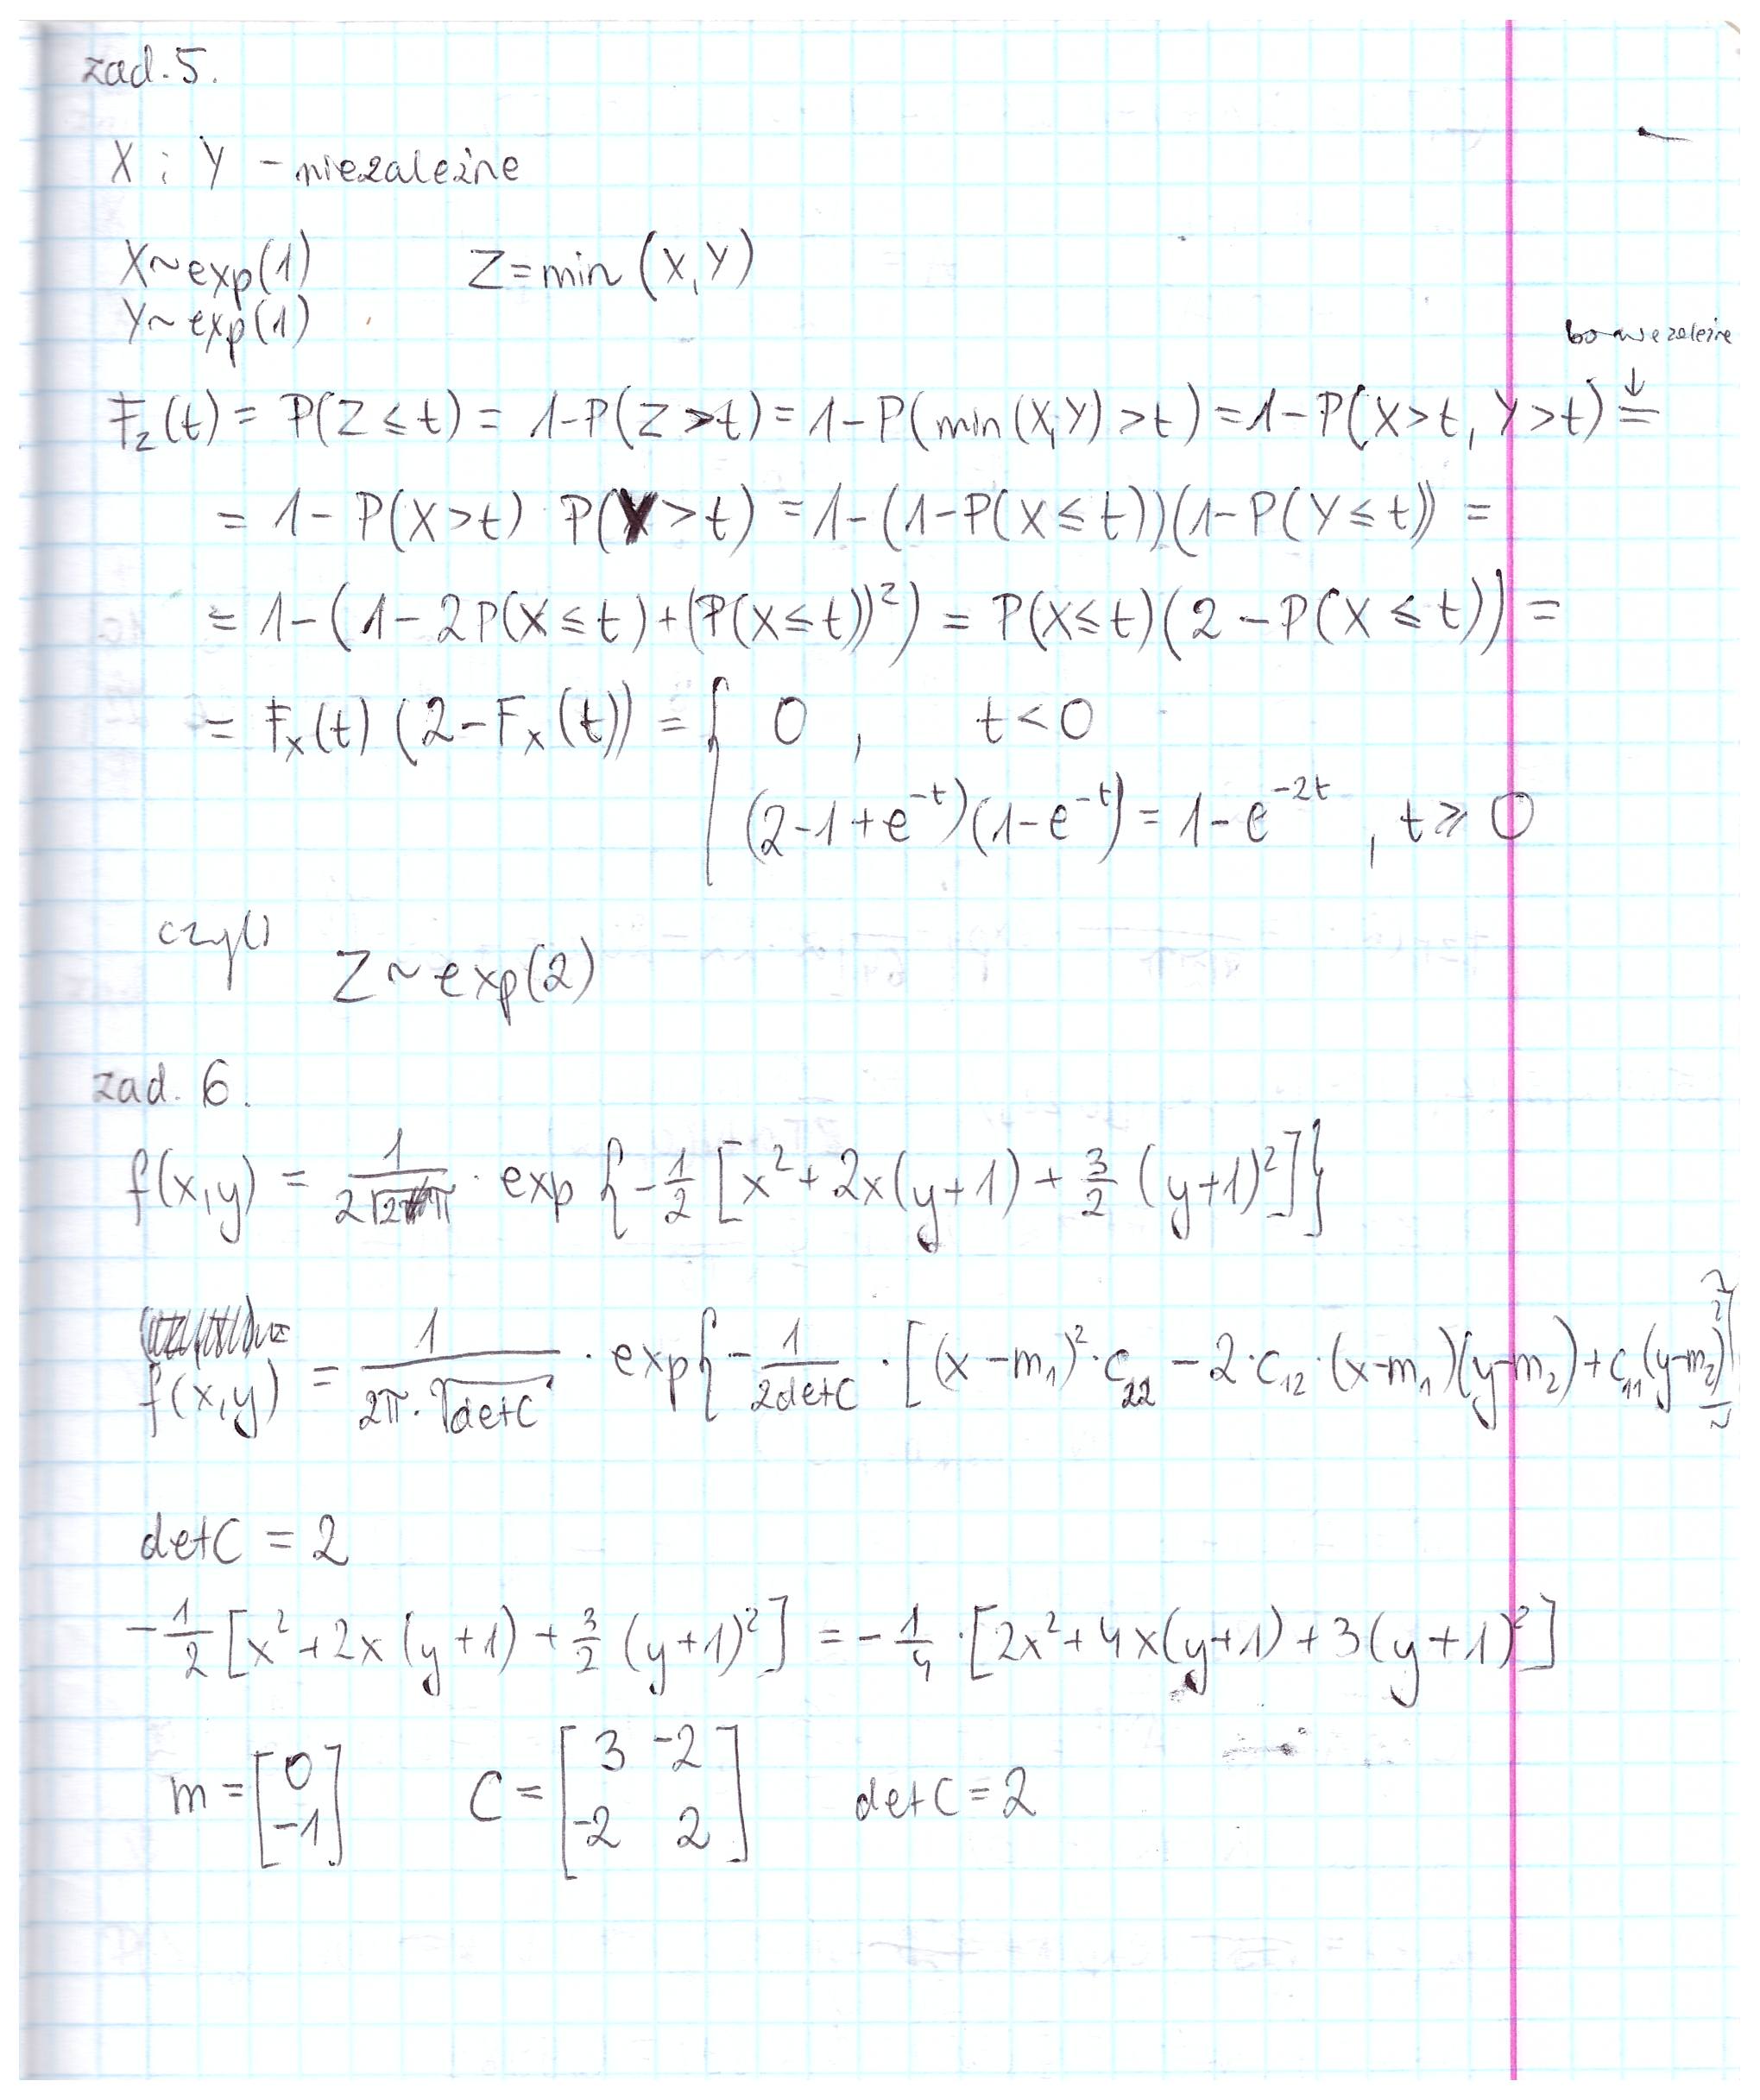 zad. 5.
X i Y - niezależne
X~exp(1) Z=min (X,Y)
Y~exp(1)
bo niezależne
↓
F_Z(t) = P(Z≤t) = 1-P(Z>t) = 1-P(min(X,Y)>t) = 1-P(X>t, Y>t) =
= 1-P(X>t) P(Y>t) = 1-(1-P(X≤t))(1-P(Y≤t)) =
= 1-(1-2P(X≤t)+(P(X≤t))²) = P(X≤t)(2-P(X≤t)) =
= F_X(t) (2-F_X(t)) = { 0 , t<0
(2-1+e^{-t})(1-e^{-t}) = 1-e^{-2t} , t≥0
czyli
Z~exp(2)
zad. 6.
f(x,y) = \frac{1}{2\sqrt{2}π} · exp {-\frac{1}{2} [x²+2x(y+1)+\frac{3}{2}(y+1)²]}
f(x,y) = \frac{1}{2π·\sqrt{detC}} · exp{-\frac{1}{2detC} · [(x-m₁)²·c₂₂-2·c₁₂·(x-m₁)(y-m₂)+c₁₁(y-m₂)²]}
detC = 2
-\frac{1}{2} [x²+2x(y+1)+\frac{3}{2}(y+1)²] = -\frac{1}{4}·[2x²+4x(y+1)+3(y+1)²]
m = [0 -1] C = [3 -2 -2 2] detC=2